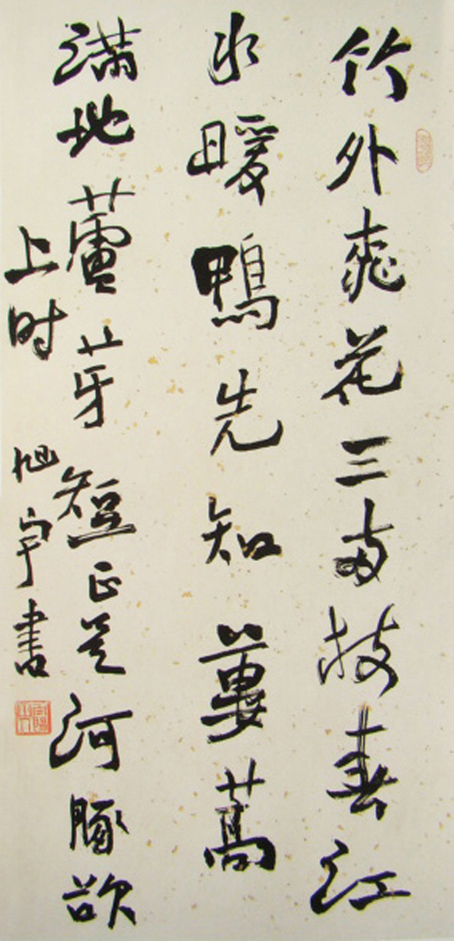 竹外桃花三两枝春江
水暖鸭先知蒌蒿
满地蘆芽短正是河豚欲
上时
旭宇书